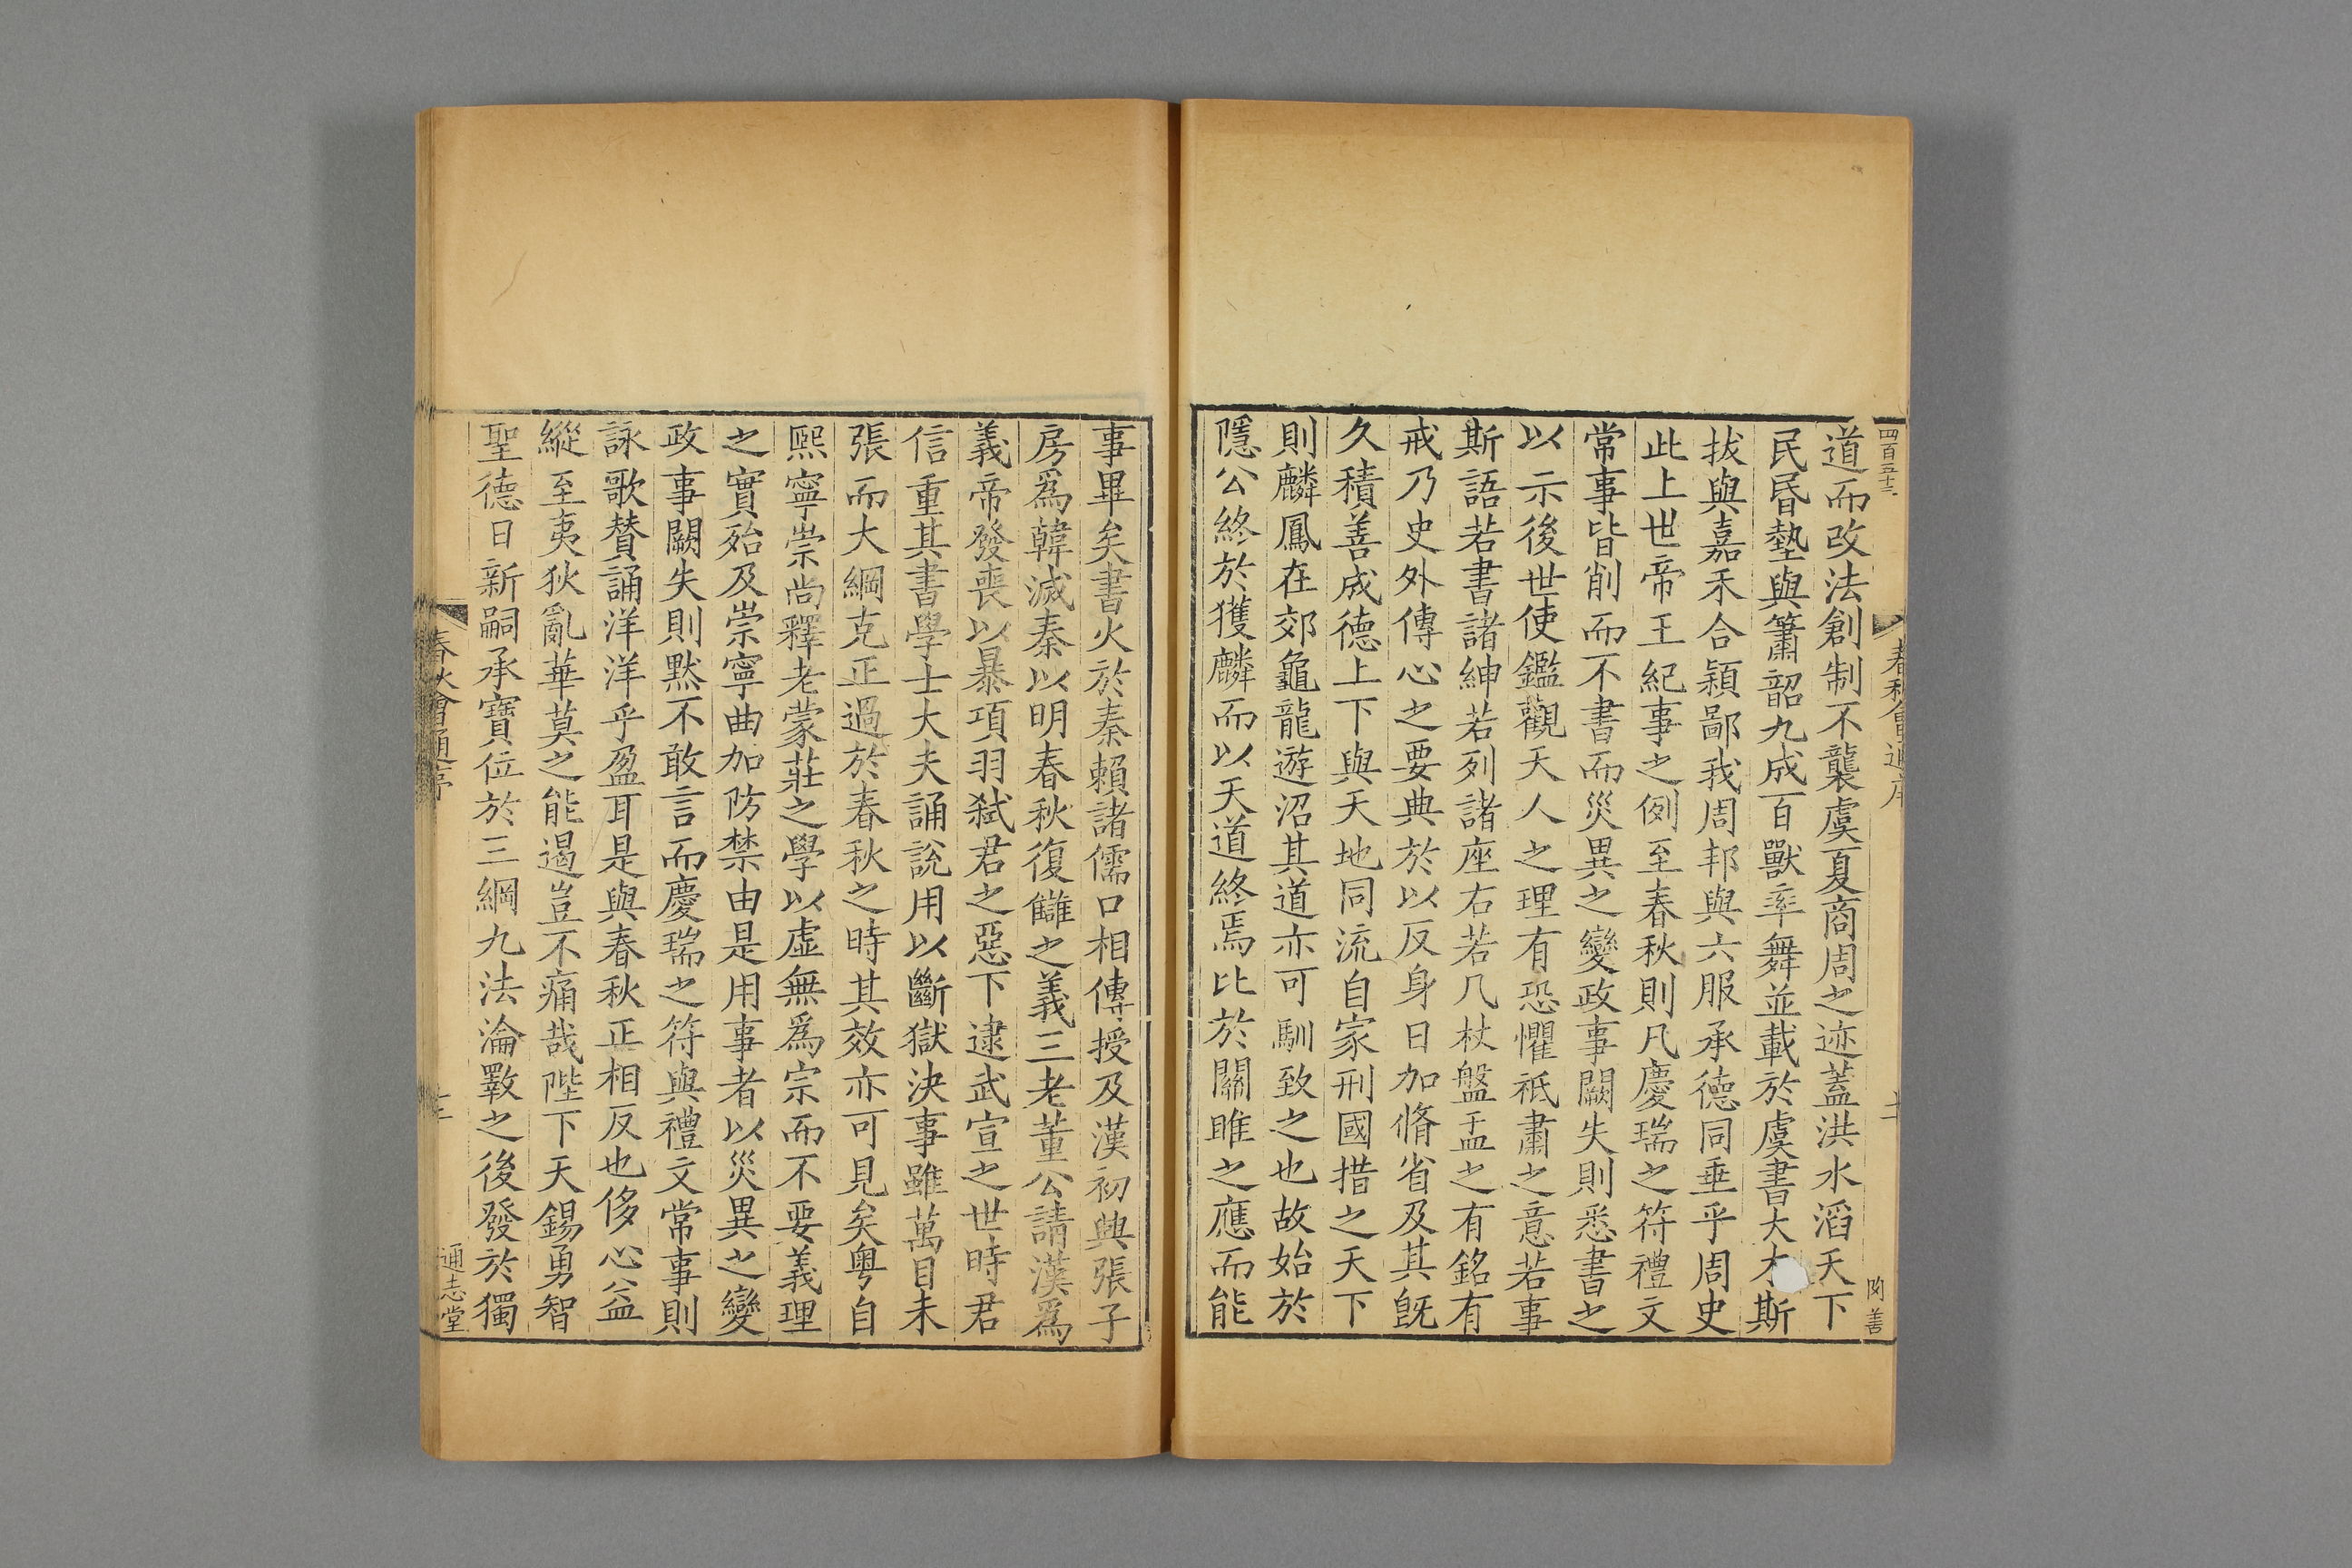 四百五十三
春秋會通序
十一
道而改法創制不襲虞夏商周之迹蓋洪水滔天下
民昏墊與簫韶九成百獸率舞並載於虞書大木斯
拔與嘉禾合穎鄙我周邦與六服承德同垂乎周史
此上世帝王紀事之例至春秋則凡慶瑞之符禮文
常事皆削而不書而災異之變政事闕失則悉書之
以示後世使鑑觀天人之理有恐懼祗肅之意若事
斯語若書諸紳若列諸座右若几杖盤盂之有銘有
戒乃史外傳心之要典於以反身日加脩省及其旣
久積善成德上下與天地同流自家刑國措之天下
則麟鳳在郊龜龍遊沼其道亦可馴致之也故始於
隱公終於獲麟而以天道終焉比於關雎之應而能
事畢矣書火於秦賴諸儒口相傳授及漢初興張子
房爲韓滅秦以明春秋復讎之義三老董公請漢爲
義帝發喪以暴項羽弑君之惡下逮武宣之世時君
信重其書學士大夫誦說用以斷獄決事雖萬目未
張而大綱克正過於春秋之時其效亦可見矣粤自
熙寧崇尚釋老蒙莊之學以虛無爲宗而不要義理
之實殆及崇寧曲加防禁由是用事者以災異之變
政事闕失則默不敢言而慶瑞之符與禮文常事則
詠歌贊誦洋洋乎盈耳是與春秋正相反也侈心益
縱至夷狄亂華莫之能遏豈不痛哉陛下天錫勇智
聖德日新嗣承寶位於三綱九法淪斁之後發於獨
春秋會通序
通志堂